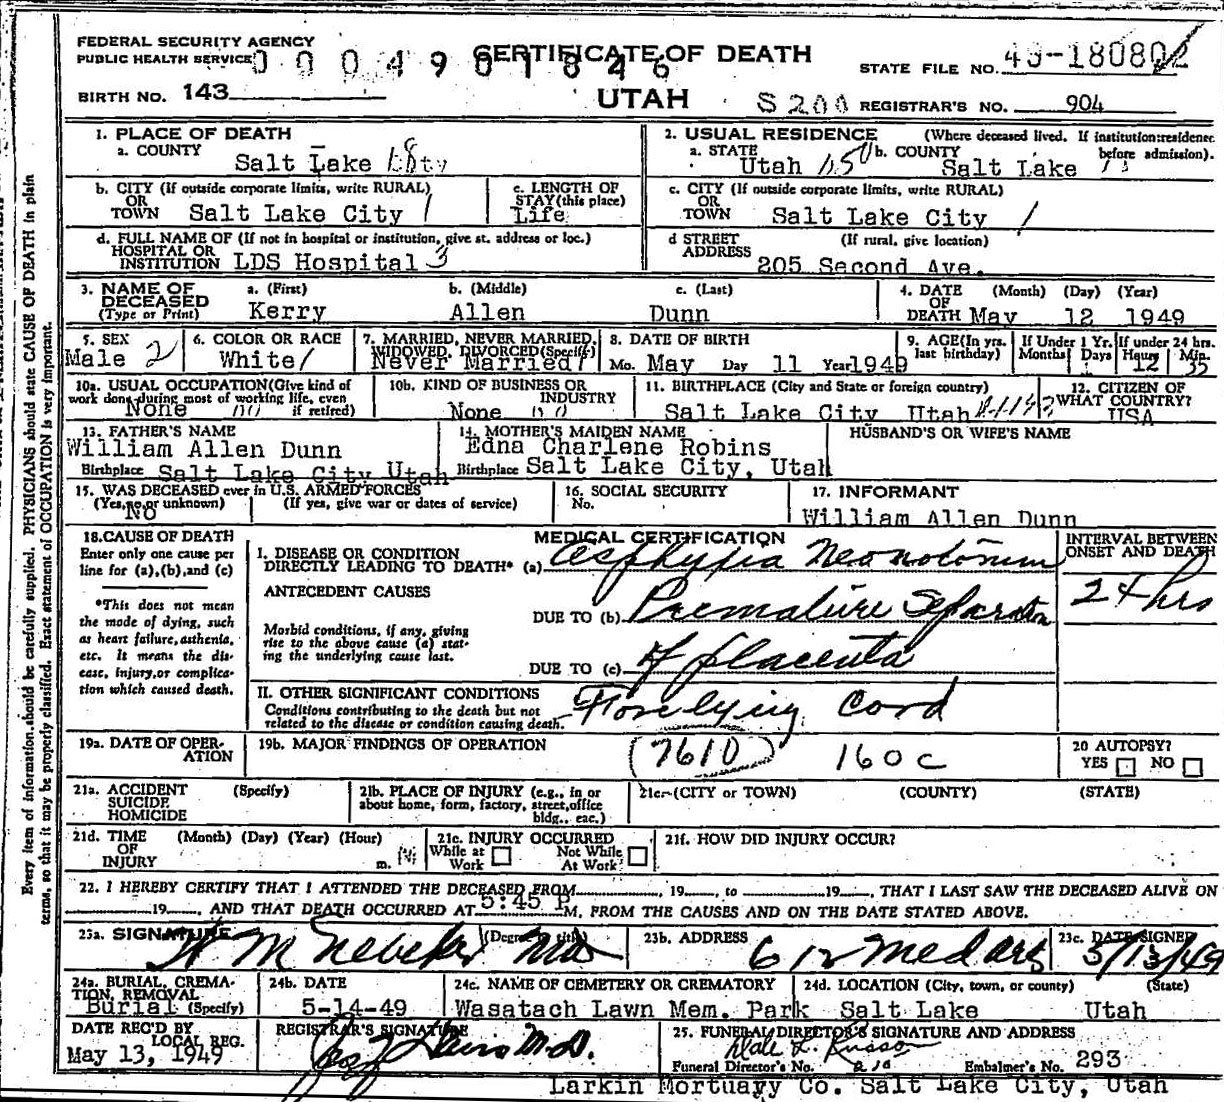 FEDERAL SECURITY AGENCY
PUBLIC HEALTH SERVICE
0004901846
CERTIFICATE OF DEATH
UTAH
STATE FILE NO. 49-180802
BIRTH NO. 143
S200 REGISTRAR'S NO. 904
1. PLACE OF DEATH
a. COUNTY
Salt Lake City
2. USUAL RESIDENCE (Where deceased lived. If institution:residence before admission).
a. STATE Utah b. COUNTY Salt Lake
b. CITY (If outside corporate limits, write RURAL)
OR
TOWN Salt Lake City 1
c. LENGTH OF
STAY (this place)
Life
c. CITY (If outside corporate limits, write RURAL)
OR
TOWN Salt Lake City 1
d. FULL NAME OF (If not in hospital or institution, give st. address or loc.)
HOSPITAL OR
INSTITUTION LDS Hospital 3
d STREET (If rural, give location)
ADDRESS
205 Second Ave.
3. NAME OF DECEASED (Type or Print)
a. (First) b. (Middle) c. (Last)
Kerry Allen Dunn
4. DATE OF DEATH (Month) (Day) (Year)
May 12 1949
5. SEX
Male 2
6. COLOR OR RACE
White 1
7. MARRIED, NEVER MARRIED, WIDOWED, DIVORCED (Specify)
Never Married 1
8. DATE OF BIRTH
Mo. May Day 11 Year 1949
9. AGE (In yrs. last birthday)
If Under 1 Yr. Months Days
1
If under 24 hrs. Hours Min.
12 35
10a. USUAL OCCUPATION (Give kind of work done during most of working life, even if retired)
None
10b. KIND OF BUSINESS OR INDUSTRY
None
11. BIRTHPLACE (City and State or foreign country)
Salt Lake City Utah
12. CITIZEN OF WHAT COUNTRY?
USA
13. FATHER'S NAME
William Allen Dunn
Birthplace Salt Lake City Utah
14. MOTHER'S MAIDEN NAME
Edna Charlene Robins
Birthplace Salt Lake City, Utah
HUSBAND'S OR WIFE'S NAME
15. WAS DECEASED ever in U.S. ARMED FORCES
(Yes, no or unknown) (If yes, give war or dates of service)
No
16. SOCIAL SECURITY
No.
17. INFORMANT
William Allen Dunn
18. CAUSE OF DEATH
Enter only one cause per
line for (a),(b),and (c)
*This does not mean
the mode of dying, such
as heart failure, asthenia,
etc. It means the dis-
ease, injury,or complica-
tion which caused death.
MEDICAL CERTIFICATION
I. DISEASE OR CONDITION
DIRECTLY LEADING TO DEATH* (a) Asphyxia Neonatorum
ANTECEDENT CAUSES
Morbid conditions, if any, giving
rise to the above cause (a) stat-
ing the underlying cause last.
DUE TO (b) Premature Separation
DUE TO (c) of placenta
II. OTHER SIGNIFICANT CONDITIONS
Conditions contributing to the death but not
related to the disease or condition causing death.
Forelying Cord
INTERVAL BETWEEN
ONSET AND DEATH
24 hrs
19a. DATE OF OPER-
ATION
19b. MAJOR FINDINGS OF OPERATION
7610 160c
20 AUTOPSY?
YES NO
21a. ACCIDENT (Specify)
SUICIDE
HOMICIDE
21b. PLACE OF INJURY (e.g., in or
about home, form, factory, street,office
bldg., eac.)
21c. (CITY OR TOWN) (COUNTY) (STATE)
21d. TIME (Month) (Day) (Year) (Hour)
OF
INJURY m.
21e. INJURY OCCURRED
While at Work Not While At Work
21f. HOW DID INJURY OCCUR?
22. I HEREBY CERTIFY THAT I ATTENDED THE DECEASED FROM 19 , to 19 , THAT I LAST SAW THE DECEASED ALIVE ON
19 , AND THAT DEATH OCCURRED AT 5:45 P M, FROM THE CAUSES AND ON THE DATE STATED ABOVE.
23a. SIGNATURE (Degree or title)
W M Nebeker MD
23b. ADDRESS
612 Med arts
23c. DATE SIGNED
5/13/49
24a. BURIAL, CREMA-
TION, REMOVAL
Burial (Specify)
24b. DATE
5-14-49
24c. NAME OF CEMETERY OR CREMATORY
Wasatach Lawn Mem. Park
24d. LOCATION (City, town, or county) (State)
Salt Lake Utah
DATE REC'D BY
LOCAL REG.
May 13, 1949
REGISTRAR'S SIGNATURE
M.D.
25. FUNERAL DIRECTOR'S SIGNATURE AND ADDRESS
Dale L. Russon
Funeral Director's No. Embalmer's No. 293
Larkin Mortuayy Co. Salt Lake City, Utah
Every item of information should be carefully supplied. PHYSICIANS should state CAUSE OF DEATH in plain
terms, so that it may be properly classified. Exact statement of OCCUPATION is very important.